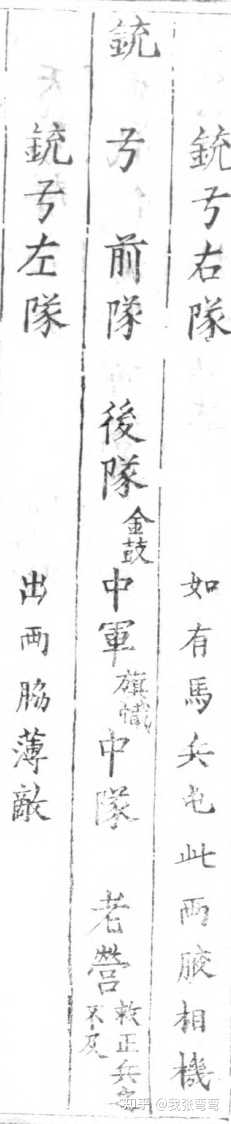 銃弓右隊 如有馬兵屯此両腋相機
銃弓前隊 後隊 金鼓 中軍 旗幟 中隊 老營 救正兵 不及
銃弓左隊 出両脇薄敵
知乎